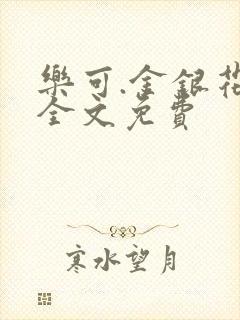 樂可.金銀花
全文免費
寒水望月